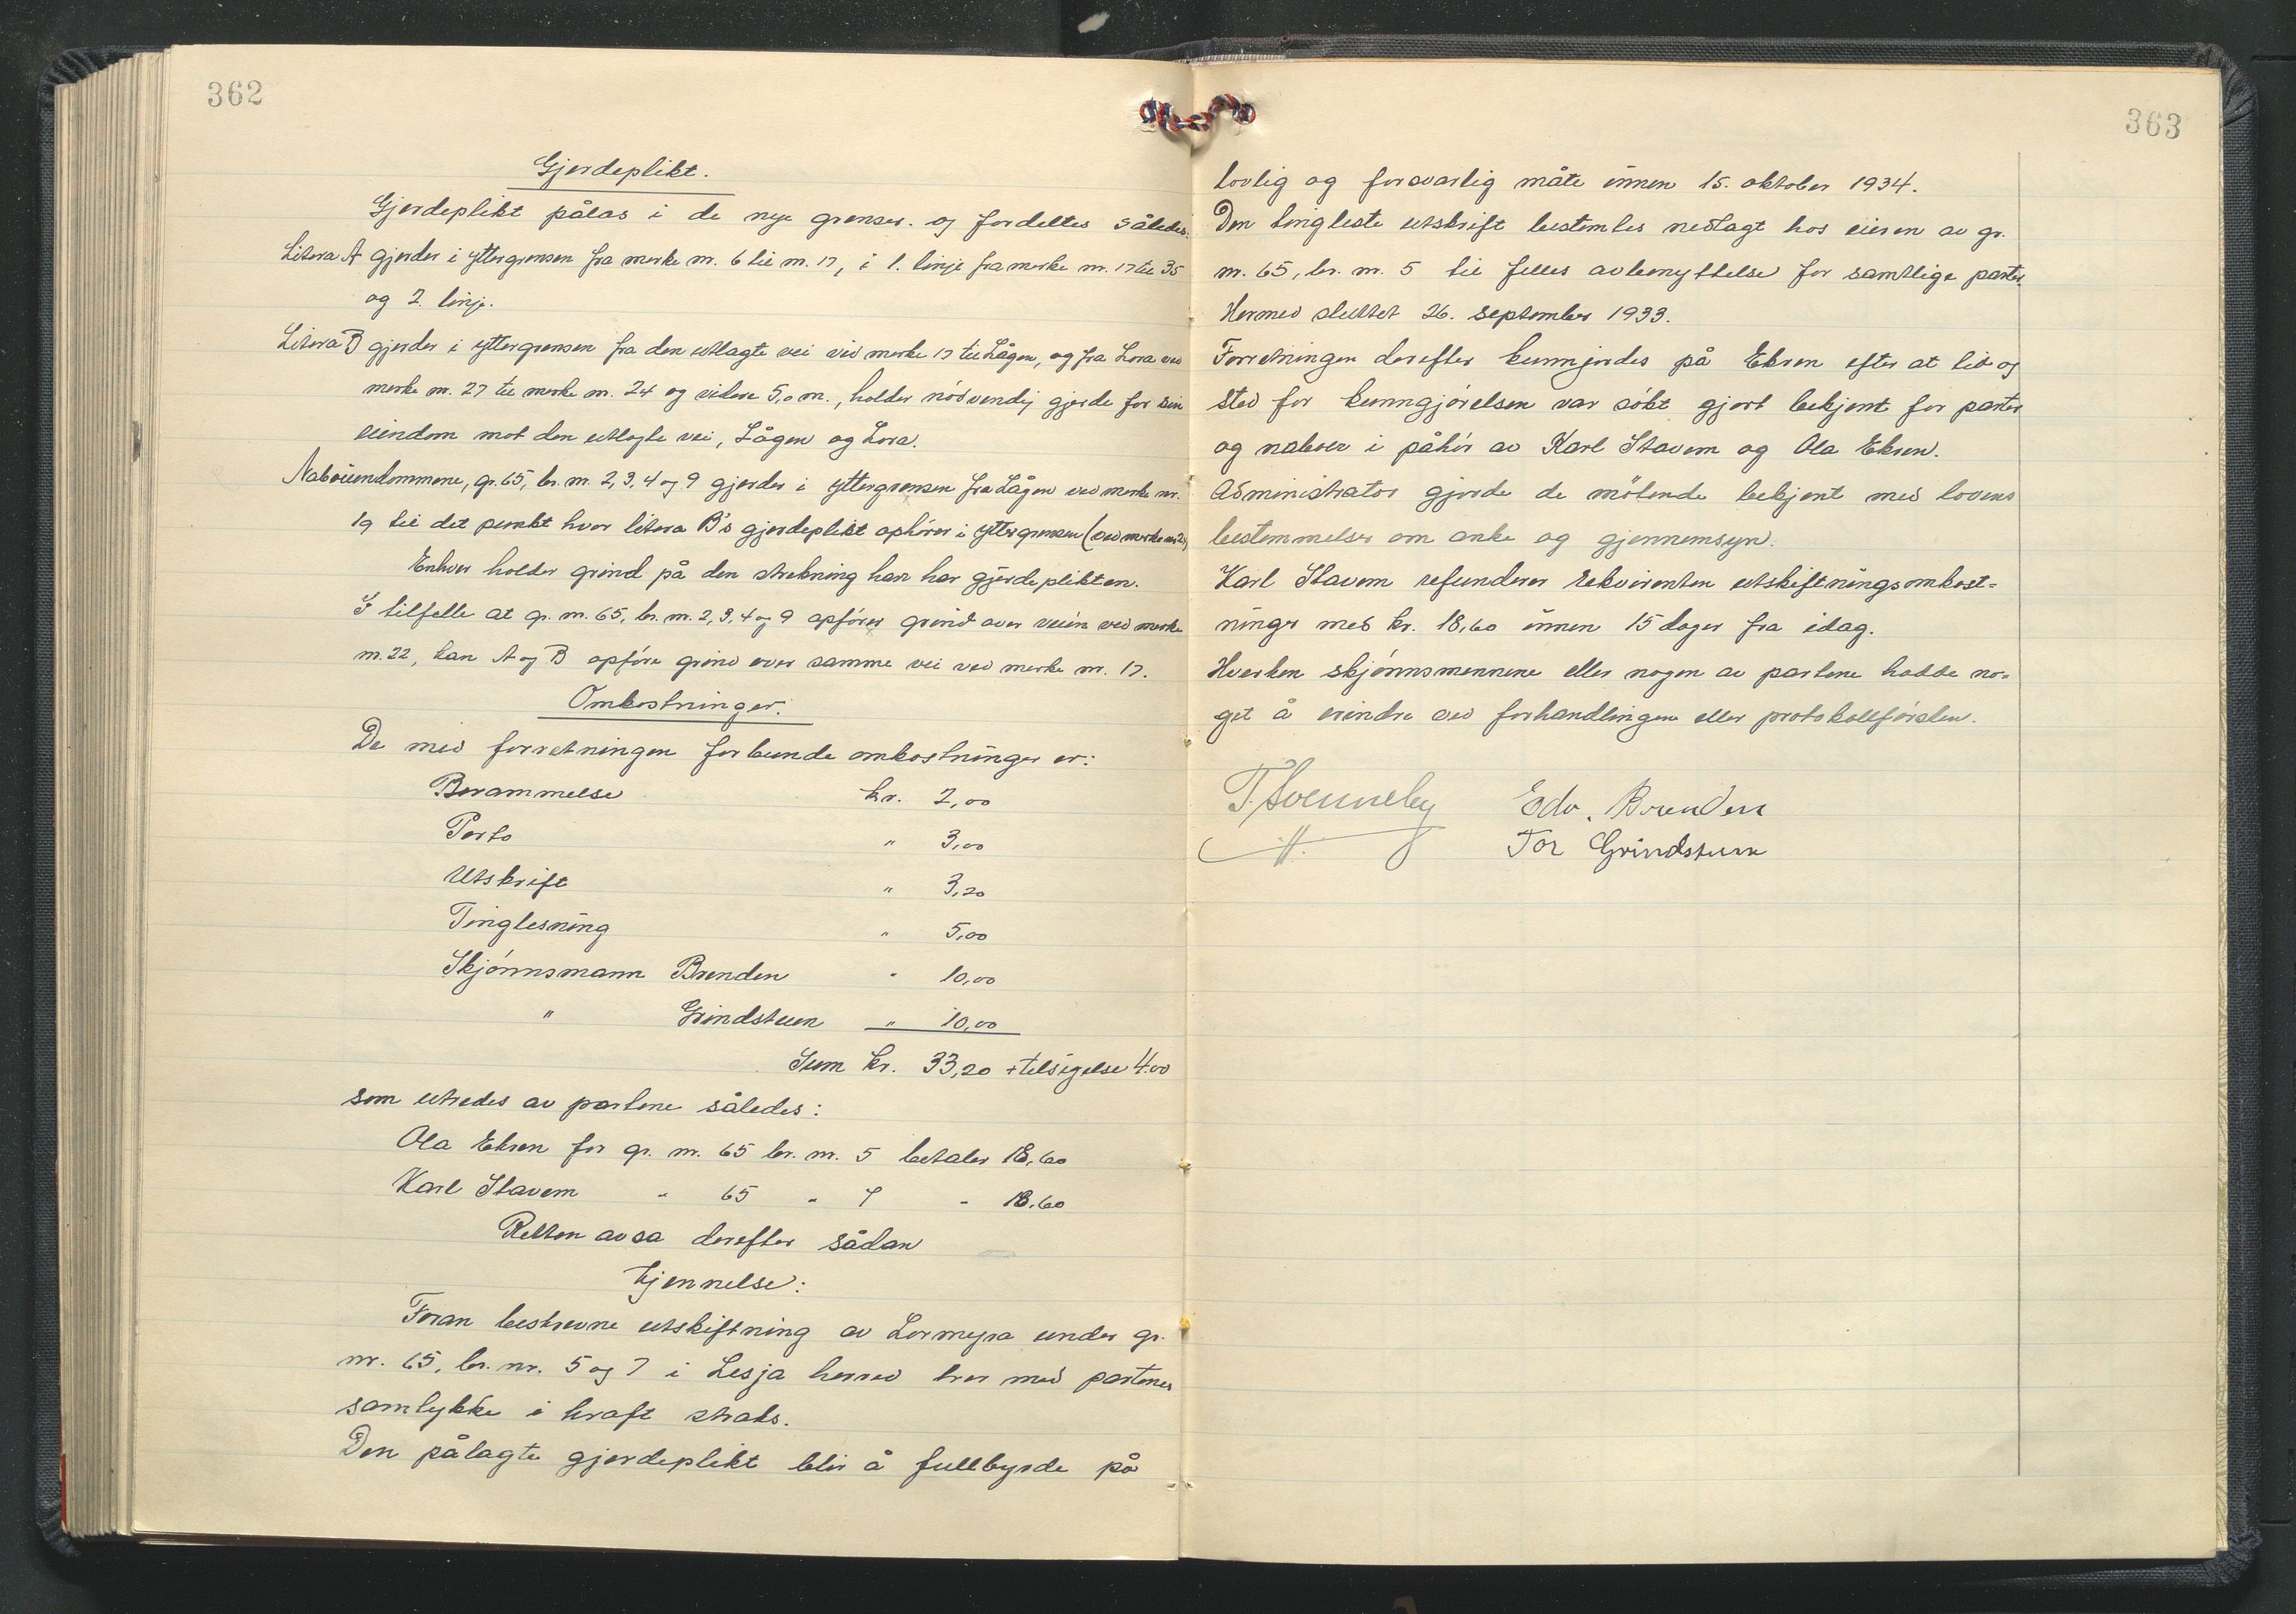 362
Gjerdeplikt.
Gjerdeplikt pålas i de nye grenser. og fordeltes således.
Litera A gjerder i yttergrensen fra merke nr. 6 til nr. 17, i 1. linje fra merke nr. 17 til 35
og 2. linje.
Litera B gjerder i yttergrensen fra den utlagte vei ved merke 17 til Lågen, og fra Lora ved
merke nr. 27 til merke nr. 24 og videre 5,0 m., holder nödvendig gjerde for sin
eiendom mot den utlagte vei, Lågen og Lora.
Naboeiendommene, gr. 65, br. nr. 2, 3, 4 og 9 gjerder i yttergrensen fra Lågen ved merke nr.
19 til det punkt hvor litera B's gjerdeplikt ophörer i yttergrensen (ved merke nr 24)
Enhver holder grind på den strekning han har gjerdeplikten.
I tilfelle at gr. nr. 65, br. nr. 2, 3, 4 og 9 opförer grind over veien ved merke
nr. 22, kan A og B opföre grind over samme vei ved merke nr. 17.
Omkostninger:
De med forretningen forbunde omkostninger er:
Berammelse kr. 2,00
Porto " 3,00
Utskrift " 3,20
Tinglesning " 5,00
Skjönnsmann Brenden " 10,00
" Grindstuen " 10,00
Sum kr. 33,20 + tilsigelse 4.00
som utredes av partene således:
Ola Ekren for gr. nr. 65 br. nr. 5 betaler 18,60
Karl Stavem " 65 " 7 " 18.60
Retten avsa derefter sådan
kjennelse:
Foran beskrevne utskiftning av Lormyra under gr.
nr. 65, br. nr. 5 og 7 i Lesja herred trer med partenes
samtykke i kraft straks.
Den pålagte gjerdeplikt blir å fullbyrde på
363
lovlig og forsvarlig måte innen 15. oktober 1934.
Den tingleste utskrift bestemtes nedlagt hos eieren av gr.
nr. 65, br. nr. 5 til felles avbenyttelse for samtlige parter.
Hermed sluttet 26. september 1933.
Forretningen derefter kunngjordes på Ekren efter at tid og
sted for kunngjörelsen var sökt gjort bekjent for parter
og naboer i påhör av Karl Stavem og Ola Ekren.
Administrator gjorde de mötende bekjent med lovens
bestemmelser om anke og gjennemsyn.
Karl Stavem refunderer rekvirenten utskiftningsomkost-
ninger med kr. 18,60 innen 15 dager fra idag.
Hverken skjönnsmennene eller nogen av partene hadde no-
get å erindre ved forhandlingen eller protokollförslen.
T. Svenneby Edv. Brenden
Tor Grindstuen